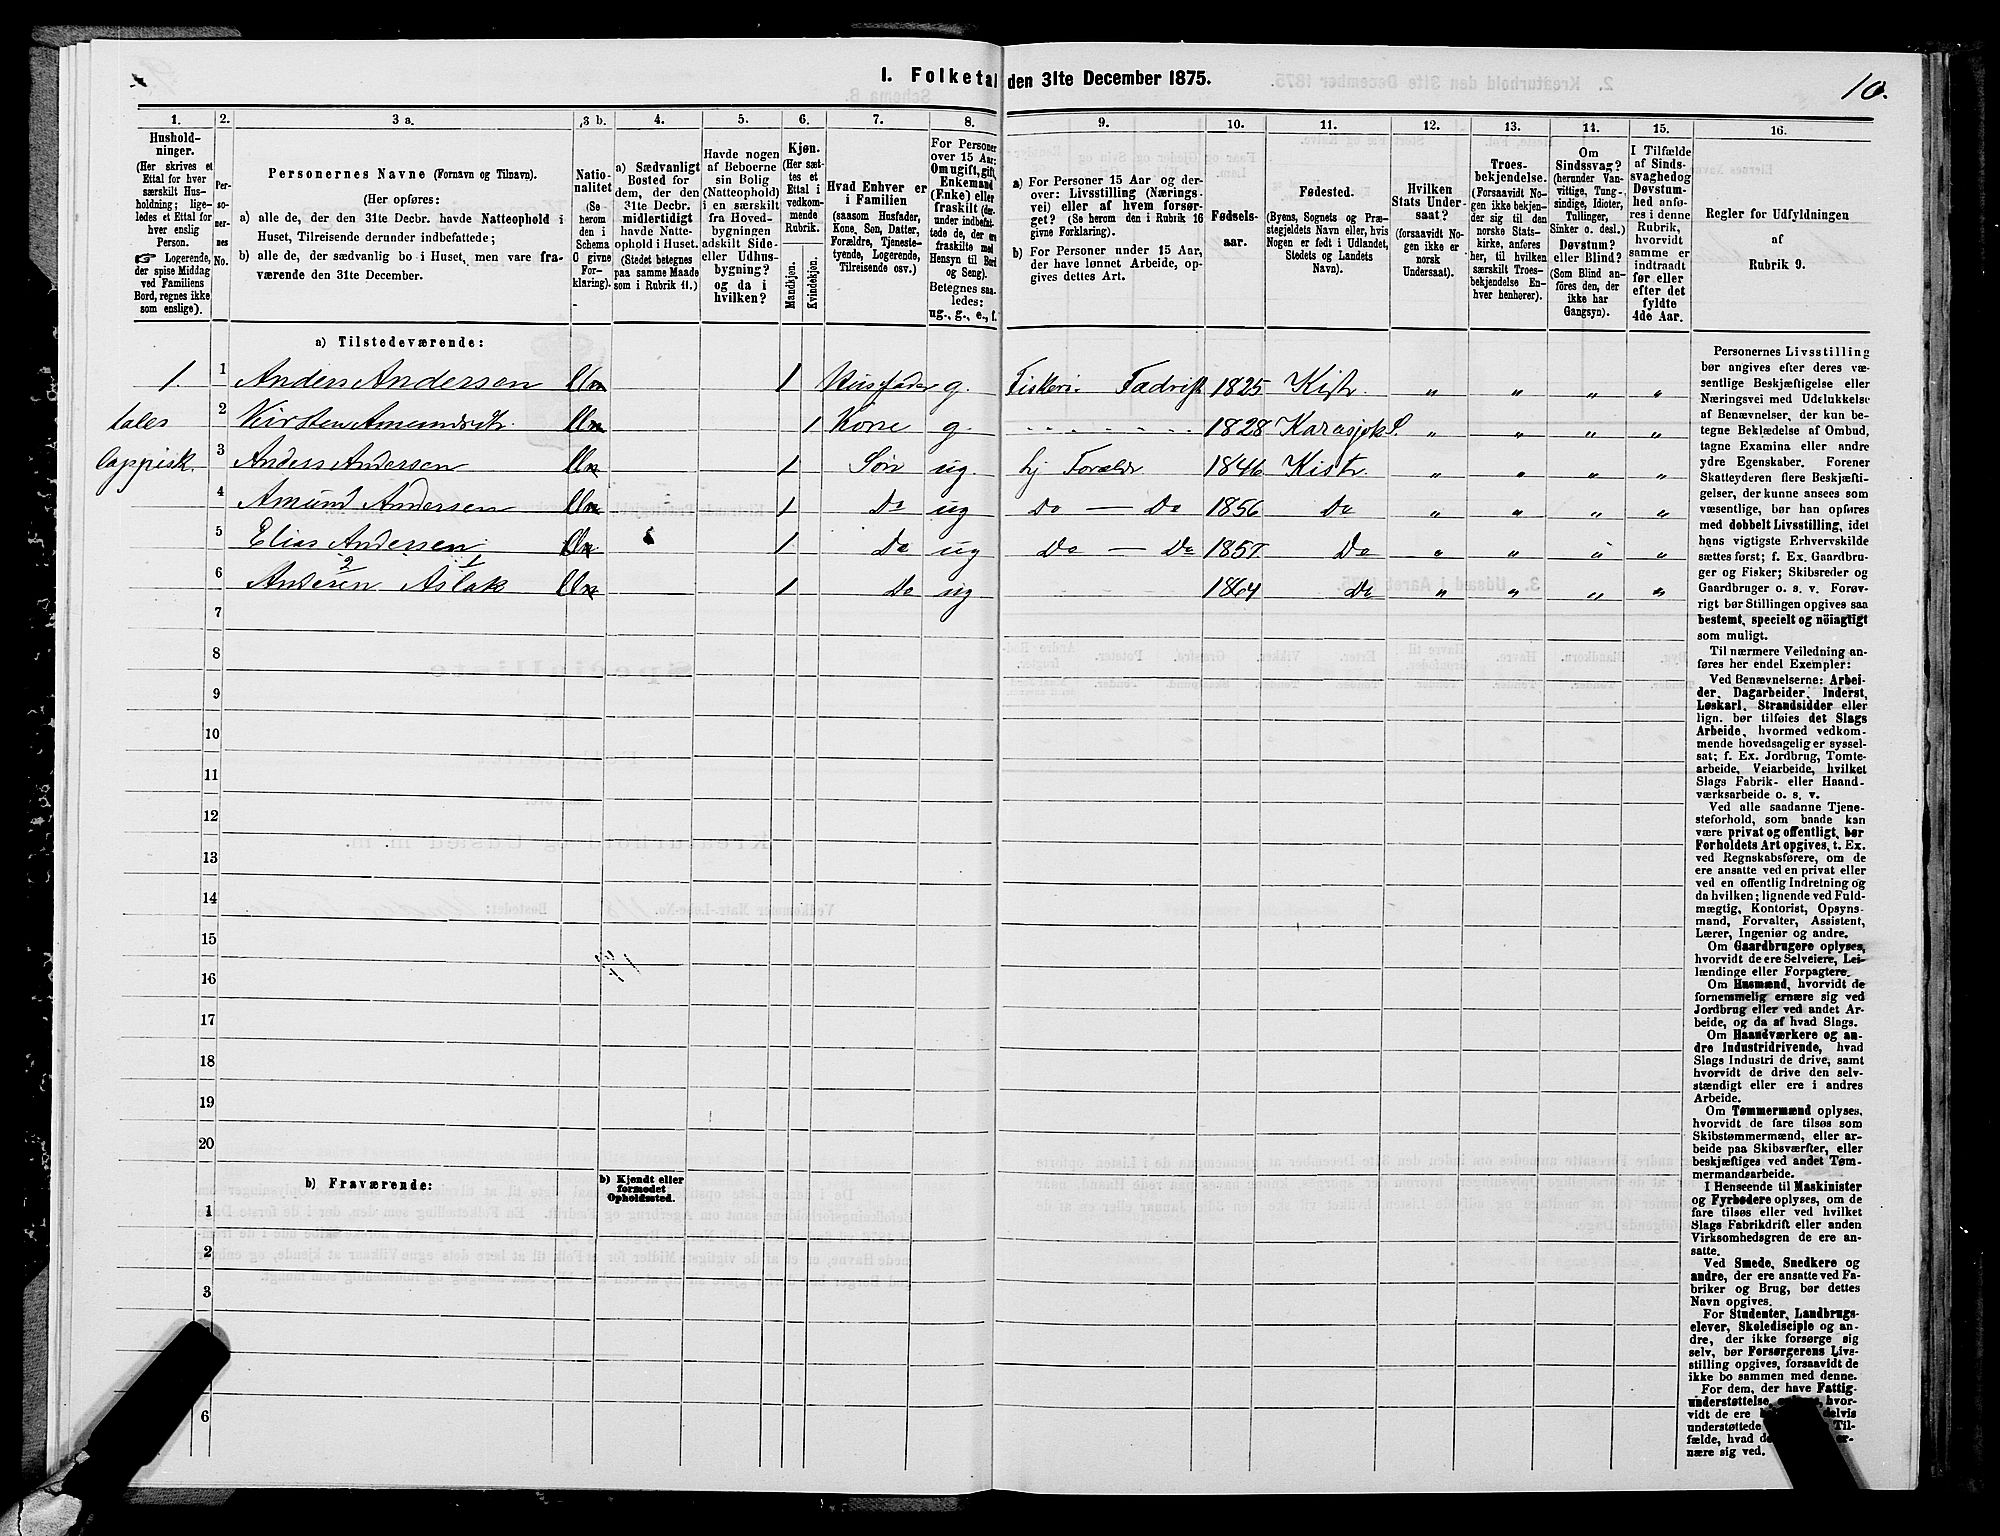 1. Folketal den 31te December 1875.
10.
1.
Husholdninger.
(Her skrives et Ettal for hver særskilt Husholdning; ligeledes et Ettal for hver enslig Person.
☞ Logerende, der spise Middag ved Familiens Bord, regnes ikke som enslige).
2.
Personernes No.
3 a.
Personernes Navne (Fornavn og Tilnavn).
(Her opføres:
a) alle de, der den 31te Decbr. havde Natteophold i Huset, Tilreisende derunder indbefattede;
b) alle de, der sædvanlig bo i Huset, men vare fraværende den 31te December.
3 b.
Nationalitet (Se herom den i Schema C givne Forklaring).
4.
a) Sædvanligt Bosted for dem, der den 31te Decbr. midlertidigt havde Natteophold i Huset. (Stedet betegnes paa samme Maade som i Rubrik 11.)
5.
Havde nogen af Beboerne sin Bolig (Natteophold) i en særskilt fra Hovedbygningen adskilt Side- eller Udhusbygning? og da i hvilken?
6.
Kjøn.
(Her sættes et Ettal i vedkommende Rubrik.
Mandkjøn.
Kvindekjøn.
7.
Hvad Enhver er i Familien
(saasom Husfader, Kone, Søn, Datter, Forældre, Tjenestetyende, Logerende, Tilreisende osv.)
8.
For Personer over 15 Aar: Om ugift, gift, Enkemand (Enke) eller fraskilt (derunder indbefattede de, der ere fraskilte med Hensyn til Bord og Seng).
Betegnes saaledes: ug., g., e., f.
9.
a) For Personer 15 Aar og derover: Livsstilling (Næringsvei) eller af hvem forsørget? (Se herom den i Rubrik 16 givne Forklaring).
b) For Personer under 15 Aar, der have lønnet Arbeide, opgives dettes Art.
10.
Fødselsaar.
11.
Fødested.
(Byens, Sognets og Præstegjeldets Navn eller, hvis Nogen er født i Udlandet, Stedets og Landets Navn).
12.
Hvilken Stats Undersaat?
(forsaavidt Nogen ikke er norsk Undersaat).
13.
Troesbekjendelse.
(Forsaavidt Nogen ikke bekjender sig til den norske Statskirke, anføres her, til hvilken særskilt Troesbekjendelse Enhver henhører).
14.
Om Sindssvag?
(herunder Vanvittige, Tungsindige, Idioter, Tullinger, Sinker o. desl.)
Døvstum? eller Blind?
(Som Blind anføres den, der ikke har Gangsyn).
15.
I Tilfælde af Sindssvaghed og Døvstumhed anføres i denne Rubrik, hvorvidt samme er indtraadt før eller efter det fyldte 4de Aar.
16.
Regler for Udfyldningen af Rubrik 9.
a) Tilstedeværende:
1. 1 Anders Andersen 1 Husfader g. Fiskeri Fædrift 1825 Kistr. " " " "
tales 2 Kirsten Amundsdtr. 1 Kone g. 1828 Karasjok S. " " " "
lappisk. 3 Anders Andersen 1 Søn ug hj Forældr 1846 Kistr. " " " "
4 Amund Andersen 1 Do ug Do — Do 1856 Do " " " "
5 Elias Andersen 1 Do ug Do — Do 1857 Do " " " "
2 1
6 Andersen Aslak 1 Do ug 1864 Do " " " "
7
8
9
10
11
12
13
14
15
16
17
18
19
20
b) Fraværende:
b) Kjendt eller formodet Opholdssted.
1
2
3
6
Personernes Livsstilling
bør angives efter deres væ-
sentlige Beskjæftigelse eller
Næringsvei med Udelukkelse
af Benævnelser, der kun be-
tegne Beklædelse af Ombud,
tagne Examina eller andre
ydre Egenskaber. Forener
Skatteyderen flere Beskjæfti-
gelser, der kunne ansees som
væsentlige, bør han opføres
med dobbelt Livsstilling, idet
hans vigtigste Erhvervskilde
sættes først; f. Ex. Gaardbru-
ger og Fisker; Skibsreder og
Gaardbruger o. s. v. Forøv-
rigt bør Stillingen opgives saa
bestemt, specielt og nöiagtigt
som muligt.
Til nærmere Veiledning an-
føres her endel Exempler:
Ved Benævnelserne: Arbei-
der, Dagarbeider, Inderst,
Løskarl, Strandsidder eller
lign. bør tilføies det Slags
Arbeide, hvormed vedkom-
mende hovedsagelig er syssel-
sat; f. Ex. Jordbrug, Tomte-
arbeide, Veiarbeide, hvilket
Slags Fabrik- eller Haand-
værksarbeide o. s. v.
Ved alle saadanne Tjene-
steforhold, som baade kan
være privat og offentligt, bør
Forholdets Art opgives, t. Ex.
ved Regnskabsførere, om de
ere ansatte ved en privat eller
ved en offentlig Indretning og
da hvilken; lignende ved Fuld-
mægtig, Kontorist, Opsyns-
mand, Forvalter, Assistent,
Lærer, Ingeniør og andre.
Om Gaardbrugere oplyses,
hvorvidt de ere Selveiere, Lei-
lændinge eller Forpagtere.
Om Husmænd, hvorvidt de
fornemmelig ernære sig ved
Jordbrug eller ved andet Ar-
beide, og da af hvad Slags.
Om Haandværkere og an-
dre Industridrivende, hvad
Slags Industri de drive, samt
hvorvidt de drive den selv-
stændigt eller ere i andres
Arbeide.
Om Tømmermænd oplyses,
hvorvidt de fare tilsøs som
Skibstømmermænd, eller ar-
beide paa Skibsværfter, eller
beskjæftiges ved andet Tøm-
mermandsarbeide.
I Henseende til Maskinister
og Fyrbødere oplyses, om de
fare tilsøs eller ved hvilket
Slags Fabrikdrift eller anden
Virksomhedsgren de ere an-
satte.
Ved Smede, Snedkere og
andre, der ere ansatte ved Fa-
briker og Brug, bør dettes
Navn opgives.
For Studenter, Landbrugs-
elever, Skoledisciple og an-
dre, der ikke forsørge sig
selv, bør Forsørgerens Livs-
stilling opgives, forsaavidt de
ikke bo sammen med denne.
For dem, der have Fattig-
understøttelse, hvor-
vidt de ere delvis
understøttede Til-
fælde, hvad de er-
nære sig ved.